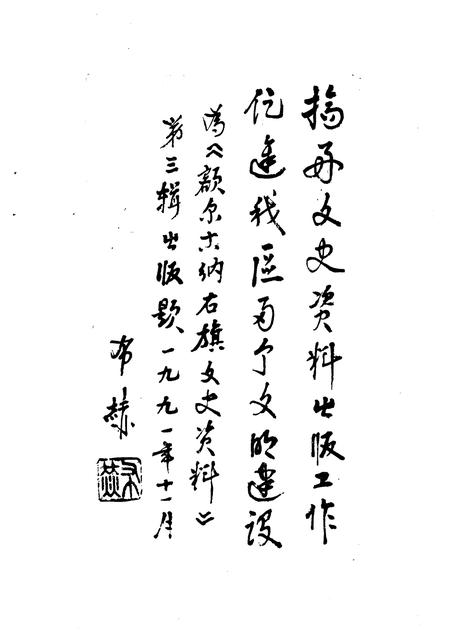 搞好文史资料出版工作
促進我區两个文明建设
為《额尔古纳右旗文史资料》
第三辑出版题 一九九一年十一月
布赫
布赫